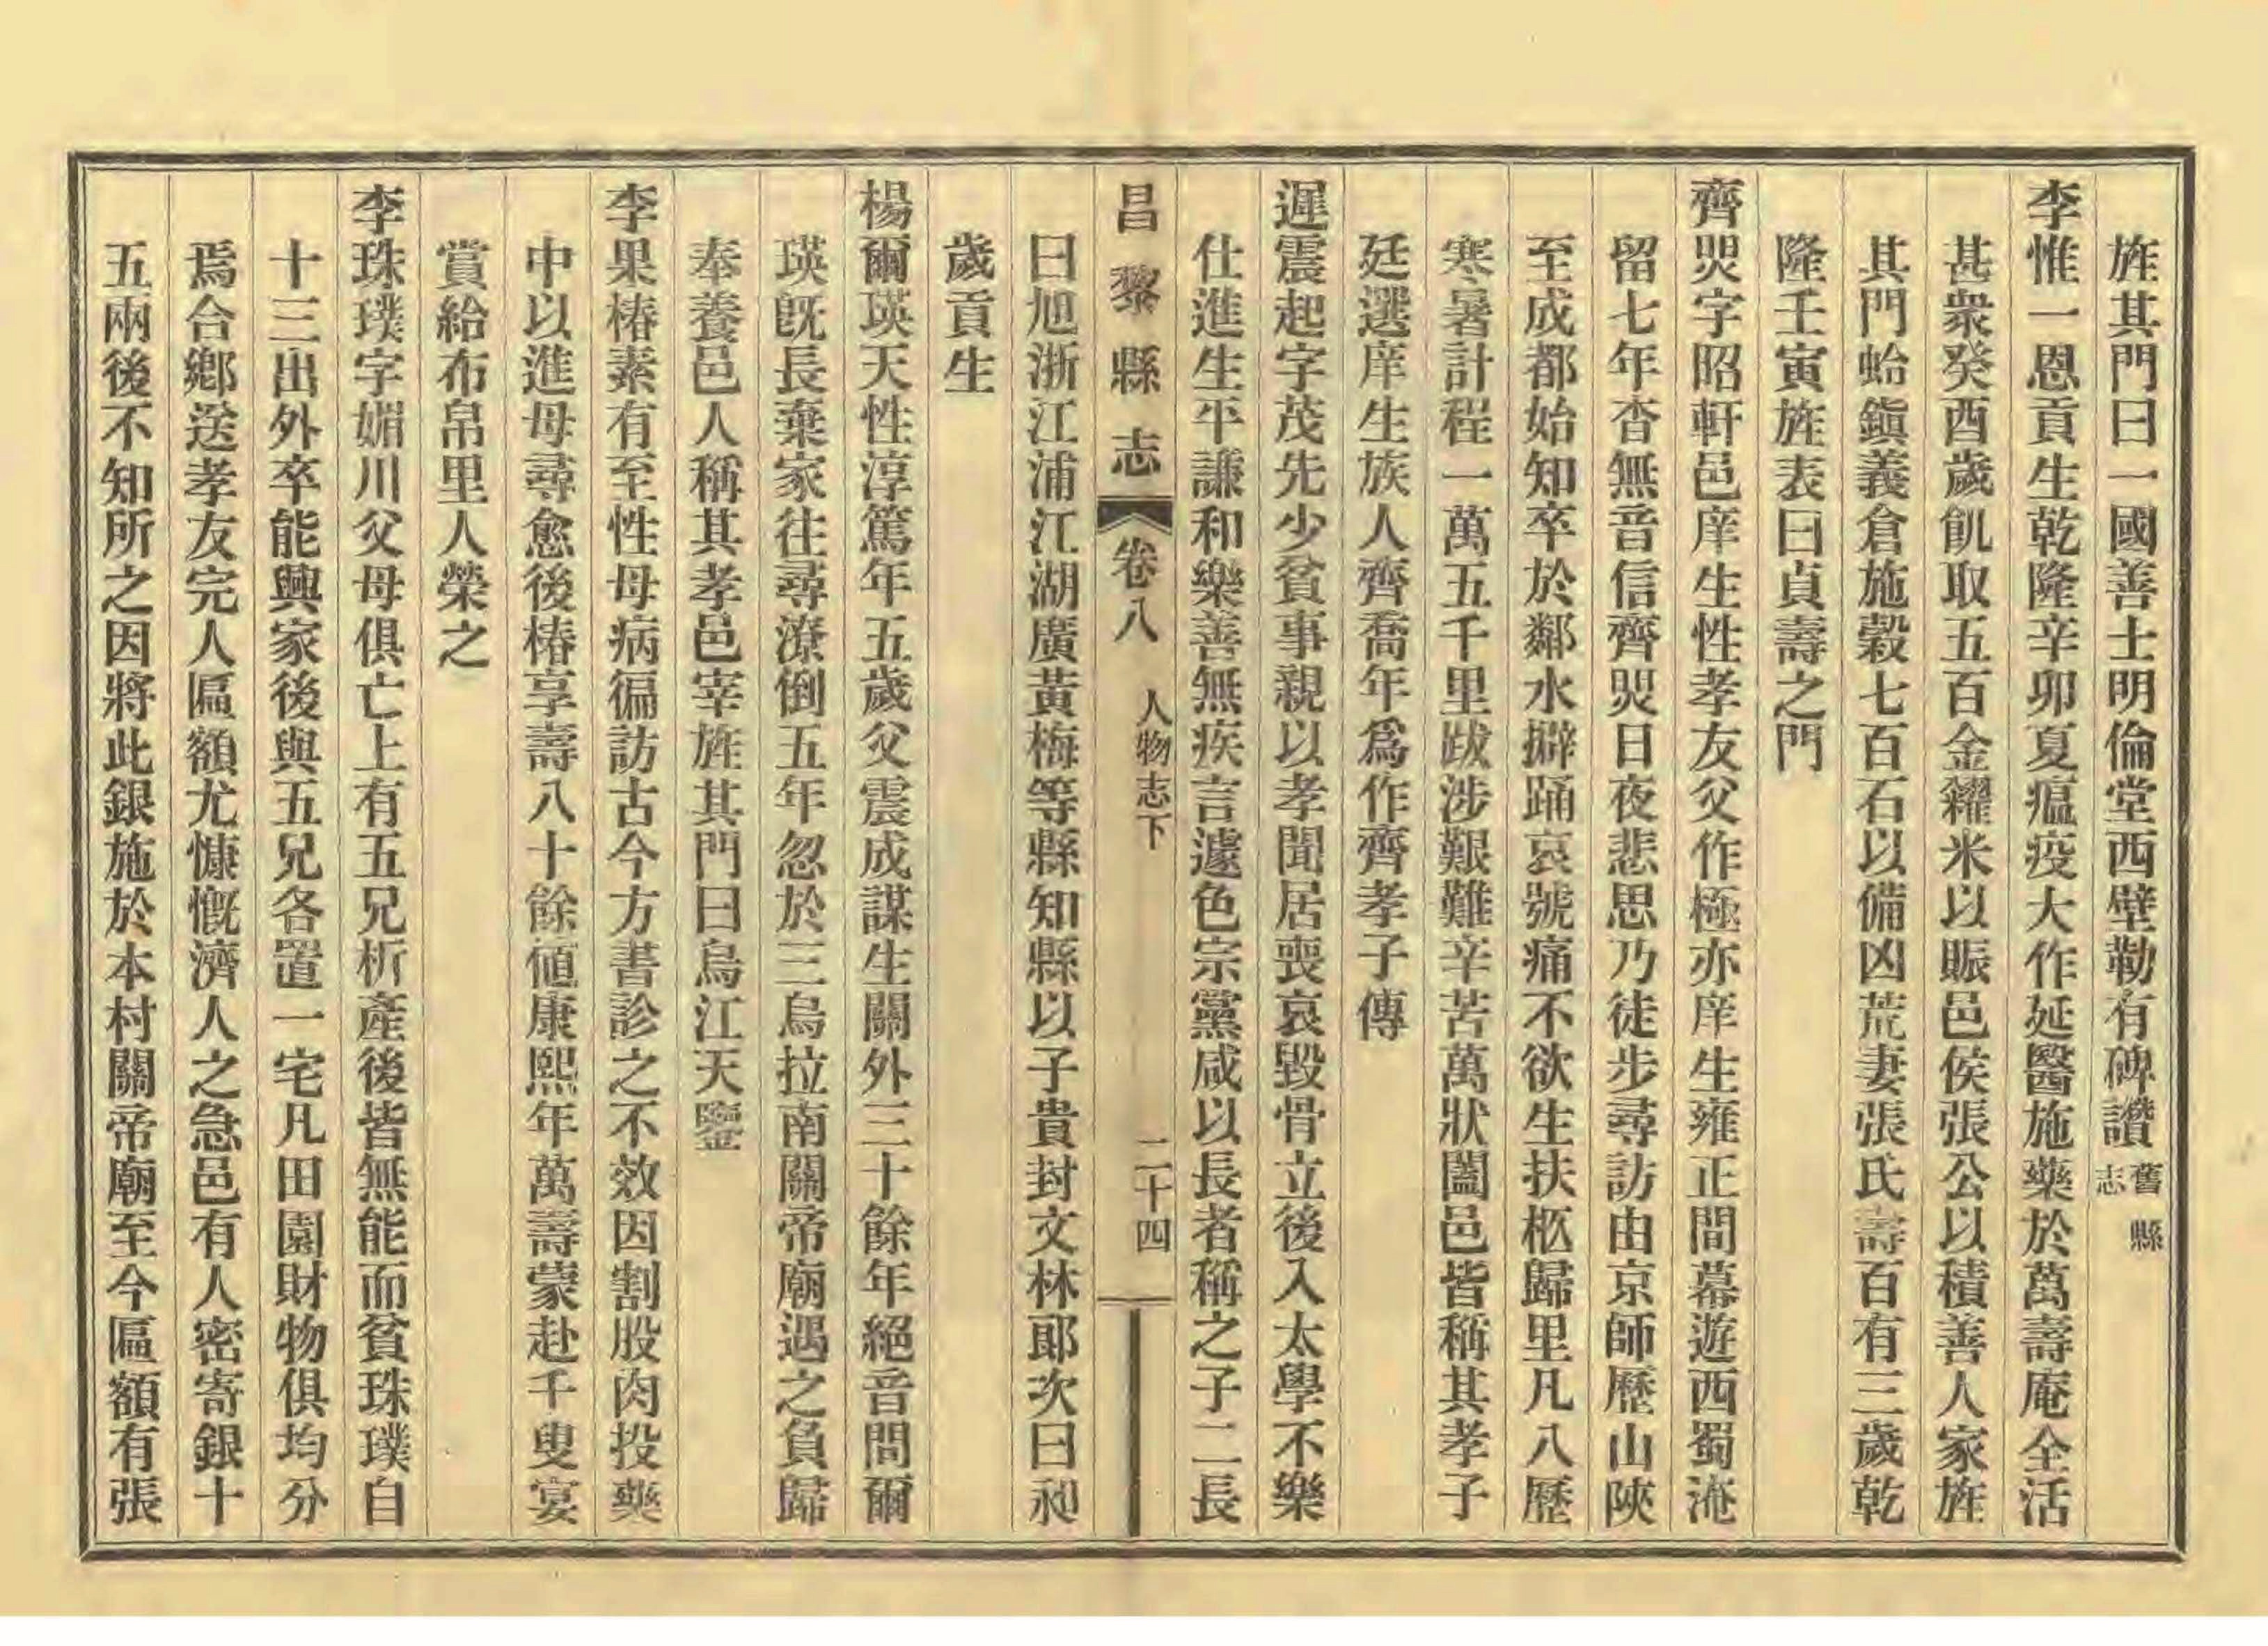 旌其門曰一國善士明倫堂西壁勒有碑讚舊縣志
李惟一恩貢生乾隆辛卯夏瘟疫大作延醫施藥於萬壽庵全活
甚衆癸酉歲飢取五百金糴米以賑邑侯張公以積善人家旌
其門蛤鎭義倉施穀七百石以備凶荒妻張氏壽百有三歲乾
隆壬寅旌表曰貞壽之門
齊煚字昭軒邑庠生性孝友父作極亦庠生雍正間幕遊西蜀淹
留七年杳無音信齊煚日夜悲思乃徒步尋訪由京師歷山陝
至成都始知卒於鄰水擗踊哀號痛不欲生扶柩歸里凡八歷
寒暑計程一萬五千里跋涉艱難辛苦萬狀闔邑皆稱其孝子
廷選庠生族人齊喬年爲作齊孝子傳
遲震起字茂先少貧事親以孝聞居喪哀毀骨立後入太學不樂
仕進生平謙和樂善無疾言遽色宗黨咸以長者稱之子二長
昌黎縣志 卷八 人物志下 二十四
曰旭浙江浦江湖廣黃梅等縣知縣以子貴封文林郎次曰昶
歲貢生
楊爾瑛天性淳篤年五歲父震成謀生關外三十餘年絕音問爾
瑛旣長棄家往尋潦倒五年忽於三烏拉南關帝廟遇之負歸
奉養邑人稱其孝邑宰旌其門曰烏江天鑒
李果椿素有至性母病徧訪古今方書診之不效因割股肉投藥
中以進母尋愈後椿享壽八十餘値康熙年萬壽蒙赴千叟宴
賞給布帛里人榮之
李珠璞字媚川父母俱亡上有五兄析產後皆無能而貧珠璞自
十三出外卒能興家後與五兄各置一宅凡田園財物俱均分
焉合鄉送孝友完人匾額尤慷慨濟人之急邑有人密寄銀十
五兩後不知所之因將此銀施於本村關帝廟至今匾額有張